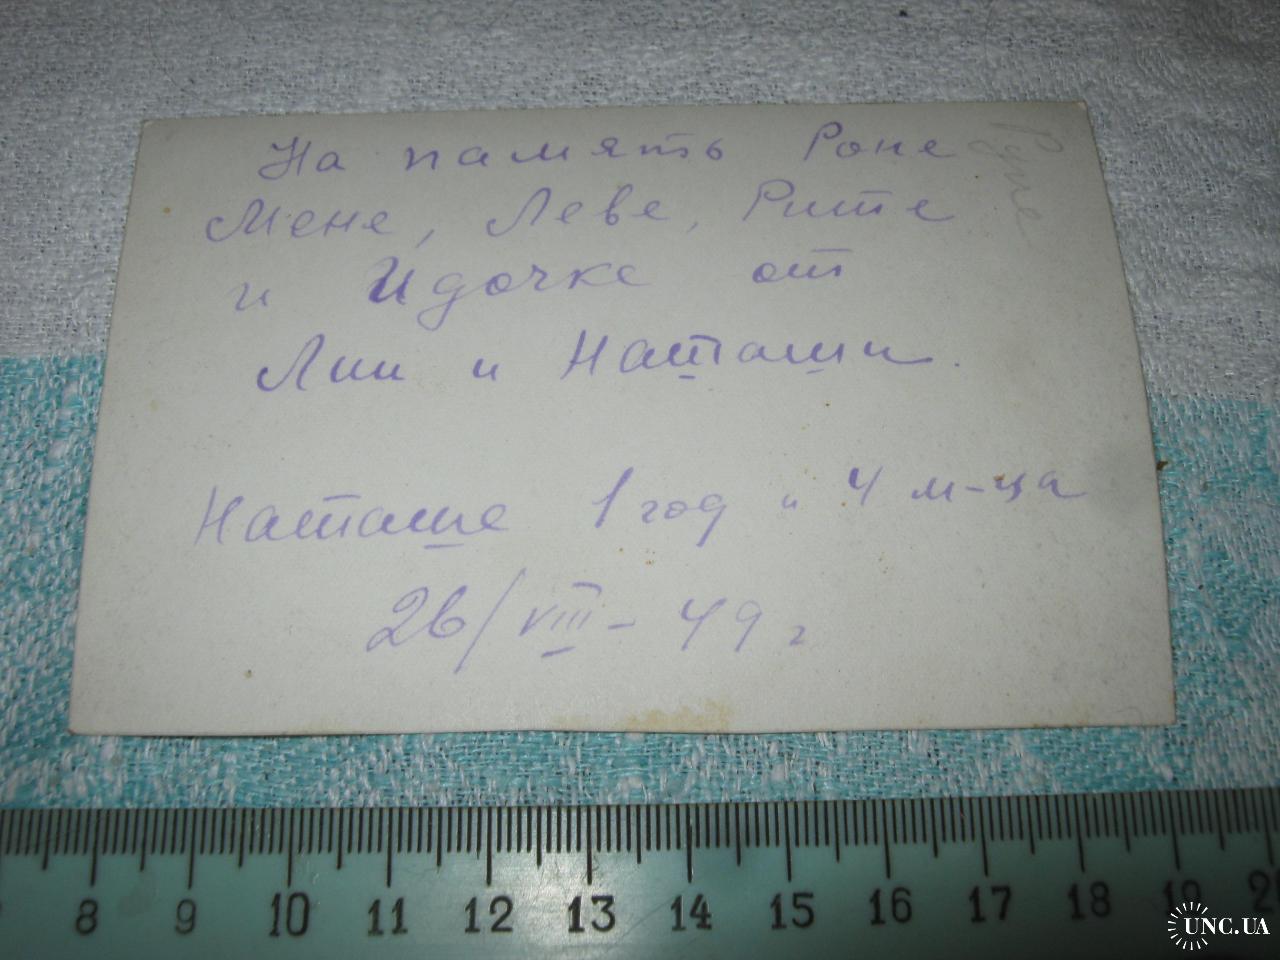 На память Роне
Мене, Леве, Рите
и Идочке от
Лии и Наташи.
Наташе 1 год и 4 м-ца
26/VIII - 49 г
8 9 10 11 12 13 14 15 16 17 18 19
UNC.UA